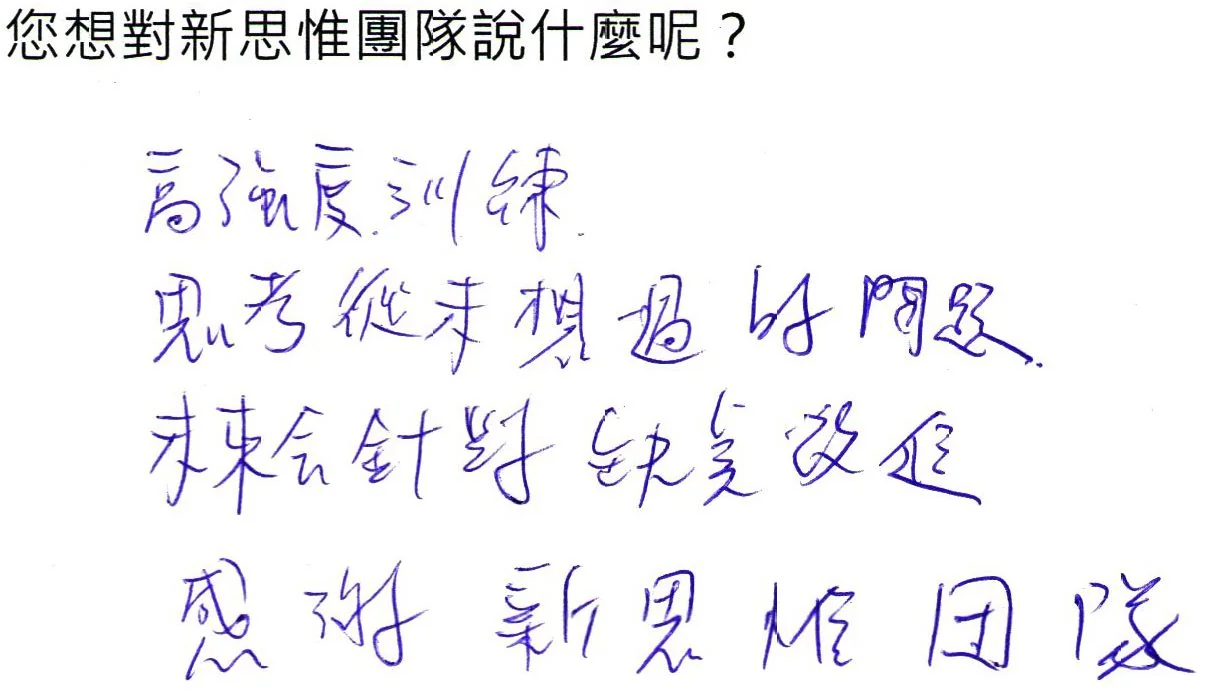 您想對新思惟團隊說什麼呢？
高強度訓練.
思考從未想過的問題.
未來会針對缺点改進
感謝新思惟団隊